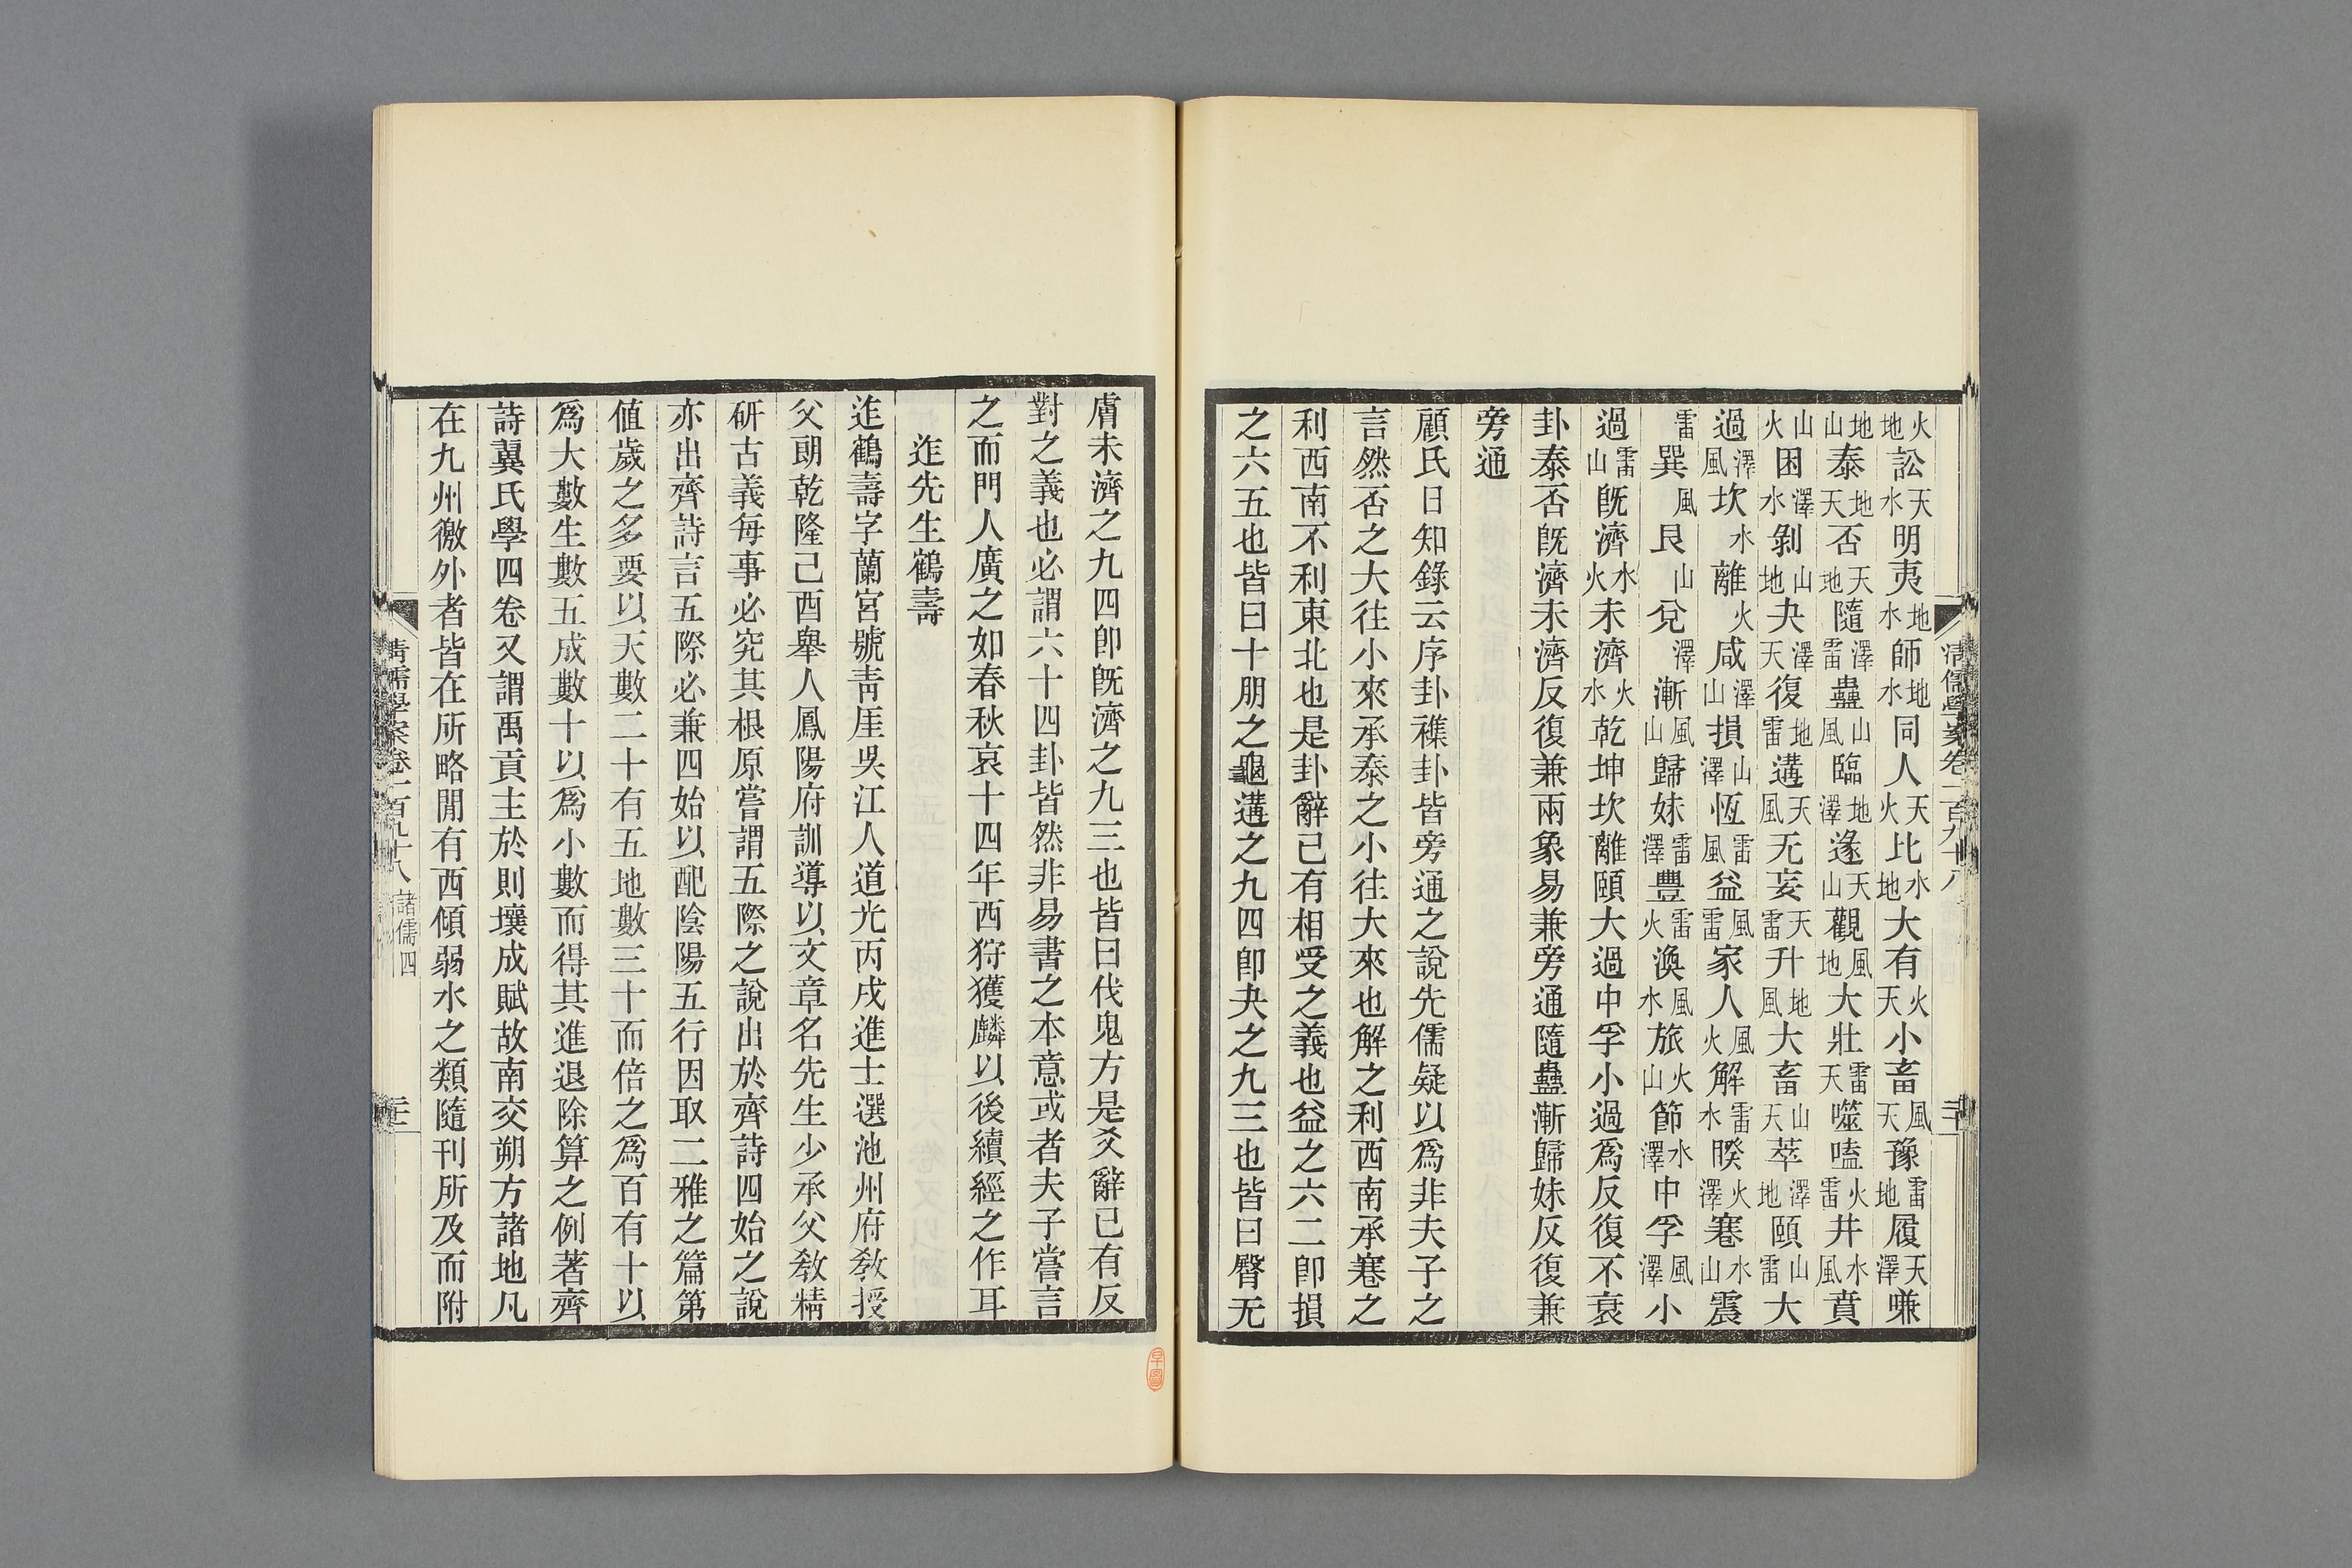 清儒學案卷一百九十八
三十
火地訟天水明夷地水師地水同人天火比水地大有火天小畜風天豫雷地履天澤嗛
地山泰地天否天地隨澤雷蠱山風臨地澤遂天山觀風地大壯雷天噬嗑火雷井水風賁
山火困澤水剝山地夬澤天復地雷遘天風无妄天雷升地風大畜山天萃澤地頤山雷大
過澤風坎水離火咸澤山損山澤恆雷風益風雷家人風火解雷水睽火澤蹇水山震
雷巽風艮山兌澤漸風山歸妹雷澤豐雷火渙風水旅火山節水澤中孚風澤小
過雷山旣濟水火未濟火水乾坤坎離頤大過中孚小過爲反復不衰
卦泰否旣濟未濟反復兼兩象易兼旁通隨蠱漸歸妹反復兼
旁通
顧氏日知錄云序卦襍卦皆旁通之說先儒疑以爲非夫子之
言然否之大往小來承泰之小往大來也解之利西南承蹇之
利西南不利東北也是卦辭已有相受之義也益之六二卽損
之六五也皆曰十朋之龜遘之九四卽夬之九三也皆曰臀无
膚未濟之九四卽旣濟之九三也皆曰伐鬼方是爻辭已有反
對之義也必謂六十四卦皆然非易書之本意或者夫子嘗言
之而門人廣之如春秋哀十四年西狩獲麟以後續經之作耳
迮先生鶴壽
迮鶴壽字蘭宮號靑厓吳江人道光丙戌進士選池州府敎授
父朗乾隆己酉舉人鳳陽府訓導以文章名先生少承父敎精
硏古義每事必究其根原嘗謂五際之說出於齊詩四始之說
亦出齊詩言五際必兼四始以配陰陽五行因取二雅之篇第
值歲之多要以天數二十有五地數三十而倍之爲百有十以
爲大數生數五成數十以爲小數而得其進退除算之例著齊
詩翼氏學四卷又謂禹貢主於則壤成賦故南交朔方諸地凡
在九州徼外者皆在所略閒有西傾弱水之類隨刊所及而附
清儒學案卷一百九十八 諸儒四